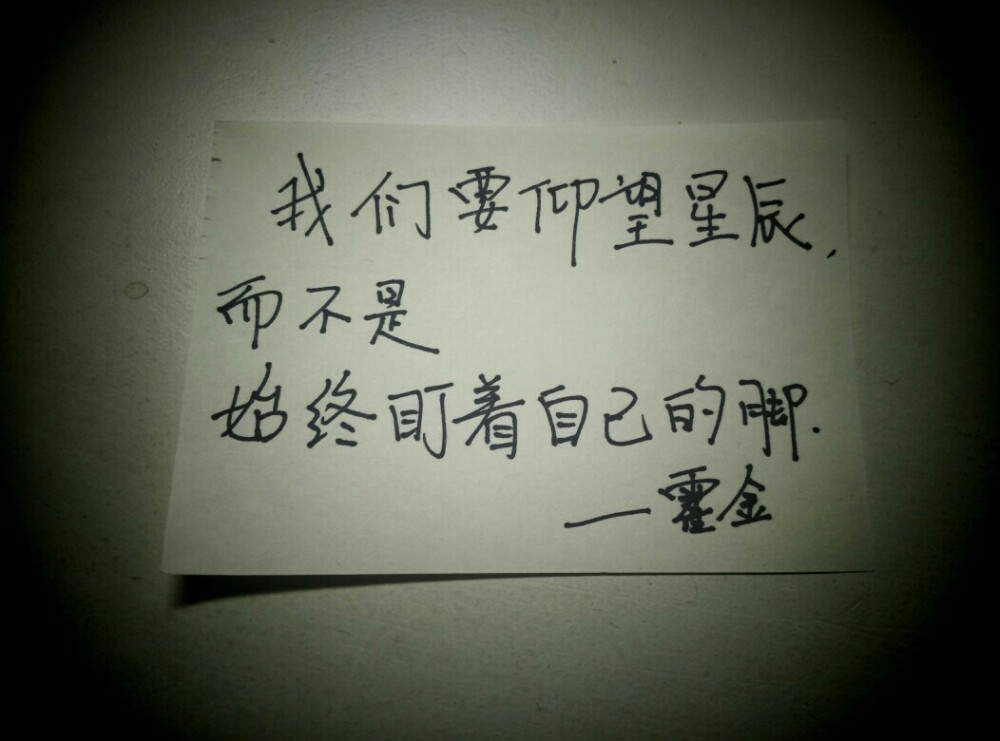 我们要仰望星辰,
而不是
始终盯着自己的脚.
—霍金